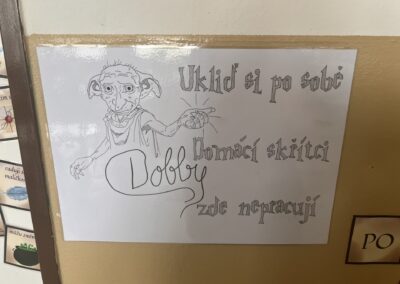 Ukliď si po sobě
Domácí skřítci
Dobby
zde nepracují
PO